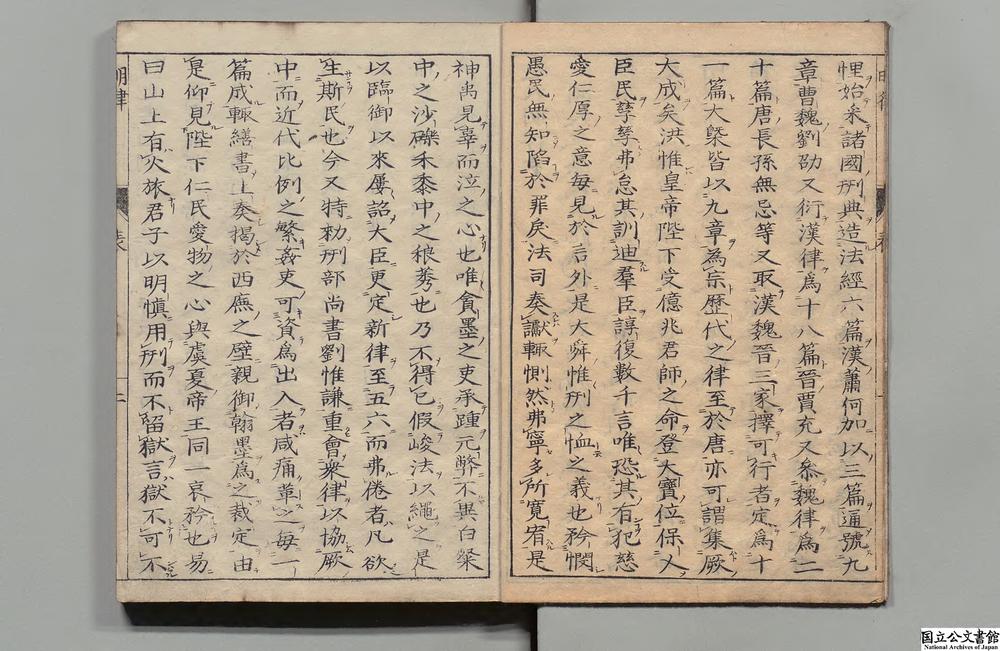 悝始采諸國刑典造法經六篇漢蕭何加以三篇通號九
章曹魏劉劭又衍漢律爲十八篇晉賈充又叅魏律爲二
十篇唐長孫無忌等又取漢魏晉三家擇可行者定爲十
一篇大槩皆以九章為宗歷代之律至於唐亦可謂集厥
大成矣洪惟皇帝陛下受億兆君師之命登大寶位保乂
臣民孳孳弗怠其訓迪羣臣諄復數千言唯恐其有犯慈
愛仁厚之意每見於言外是大舜惟刑之恤之義也矜憫
愚民無知陷於罪戾法司奏讞輒惻然弗寧多所寬宥是
神禹見辜而泣之心也唯貪墨之吏承踵元弊不異白粲
中之沙礫禾黍中之稂莠也乃不得已假峻法以繩之是
以臨御以來屢詔大臣更定新律至五六而弗倦者凡欲
生斯民也今又特勑刑部尚書劉惟謙重會衆律以協厥
中而近代比例之繁姦吏可資爲出入者咸痛革之每一
篇成輒繕書上奏揭於西廡之壁親御翰墨爲之裁定由
是仰見陛下仁民愛物之心與虞夏帝王同一哀矜也易
曰山上有火旅君子以明愼用刑而不留獄言獄不可不
明律 表 二
国立公文書館
National Archives of Japan